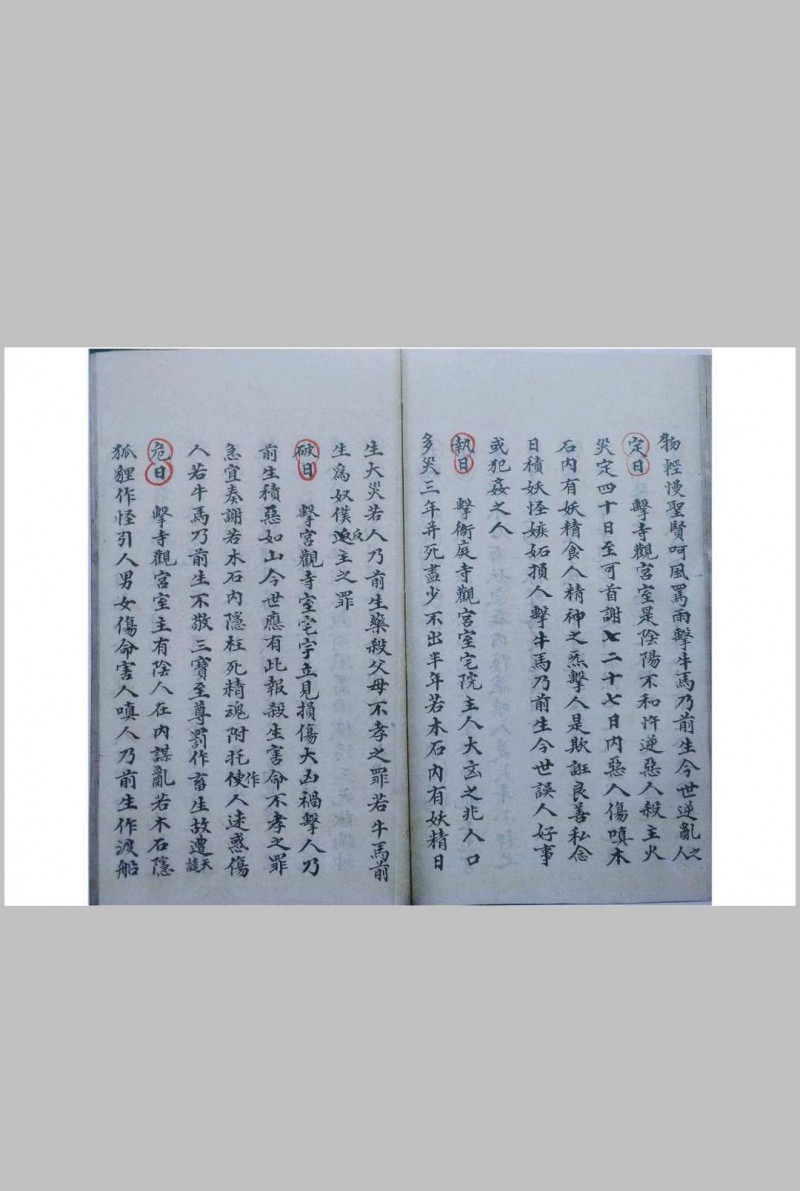 物輕慢聖賢呵風罵雨擊牛馬乃前生今世逆亂人之
定日　擊寺觀宮室是陰陽不和忤逆惡人殺主火
災定四十日至可首謝七二十七日内惡入傷嗔木
石内有妖精食人精神之炁擊人是欺誑良善私念
日積妖怪嫉妬損人擊牛馬乃前生今世誤人好事
或犯姦之人
執日　擊衙庭寺觀宮室宅院主人大玄之兆人口
多災三年并死盡少不出半年若木石内有妖精日
生大災若人乃前生藥殺父母不孝之罪若牛馬前
生爲奴僕反主之罪
破日　擊宮觀寺室宅宇立見損傷大凶禍擊人乃
前生積惡如山今世應有此報殺生害命不孝之罪
急宜奏謝若木石内隱枉死精魂附托使作人迷惑傷
人若牛馬乃前生不敬三寶至尊罰作畜生故遭天譴
危日　擊寺觀宮室主有陰人在内謀亂若木石隱
狐貍作怪引人男女傷命害人嗔人乃前生作渡船